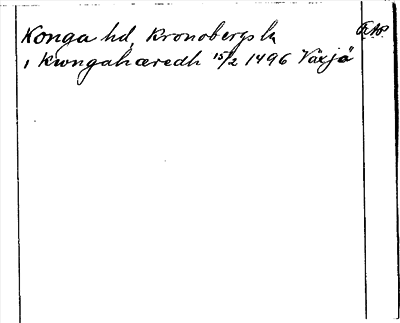 Konga hd, Kronobergs ln
i Kwngahæredh 15/2 1496 Växjö